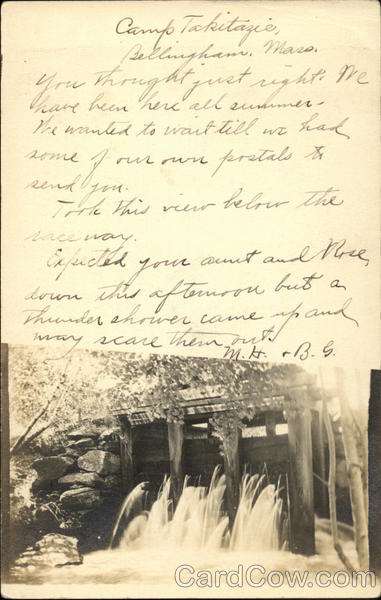 Camp Takitazie,
Bellingham. Mass.
You thought just right. We
have been here all summer-
We wanted to wait till we had
some of our own postals to
send you.
Took this view below the
raceway.
Expected your aunt and Rose
down this afternoon but a
thunder shower came up and
may scare them out.
M. H. & B. G.
CardCow.com